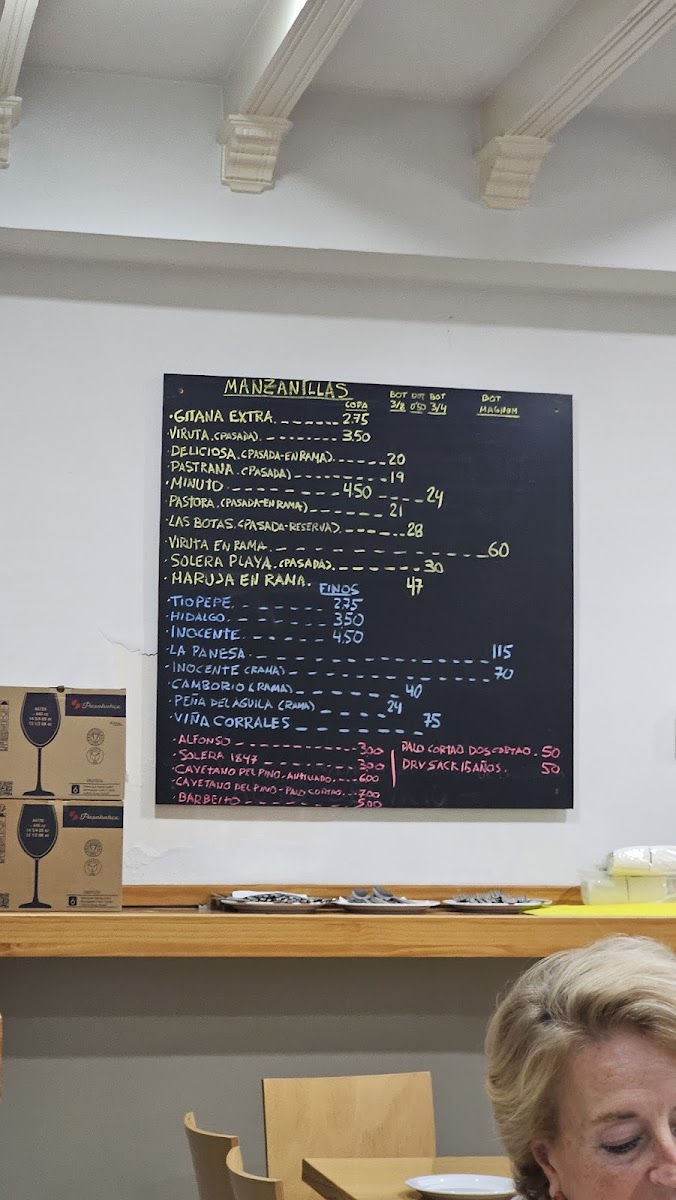 MANZANILLAS
COPA
BOT 3/8
BOT 0'50
BOT 3/4
BOT MAGNUM
·GITANA EXTRA. - - - - - - - 2.75
·VIRUTA.(PASADA). - - - - - - - - 3.50
·DELICIOSA.(PASADA-EN RAMA). - - - - - 20
·PASTRANA.(PASADA) - - - - - - - - - 19
·MINUTO - - - - - - - - - - 4.50 - - - - 24
·PASTORA.(PASADA-EN RAMA) - - - - - - 21
·LAS BOTAS.(PASADA-RESERVA). - - - - - 28
·VIRUTA EN RAMA. - - - - - - - - - - - - - - 60
·SOLERA PLAYA.(PASADA). - - - - - - - 30
·MARUJA EN RAMA. 47
FINOS
·TIO PEPE. - - - - - - - 2.75
·HIDALGO. - - - - - - - 3.50
·INOCENTE. - - - - - - 4.50
·LA PANESA. - - - - - - - - - - - - - - - 115
·INOCENTE (RAMA) - - - - - - - - - - - - 70
·CAMBORIO (RAMA) - - - - - - - 40
·PEÑA DEL AGUILA (RAMA) - - - - - 24
·VIÑA CORRALES - - - - - - - - 75
·ALFONSO - - - - - - - - - - 3.00
·SOLERA 1847 - - - - - - - - 3.00
·CAYETANO DEL PINO - AMTILLADO - - - 6.00
·CAYETANO DEL PINO - PALO CORTAO. - - - 7.00
·BARBEITO - - - - - - - - - 5.00
PALO CORTAO DOS CORTAO. 50
DRY SACK 15 AÑOS. 50
Pasabahce
Pasabahce